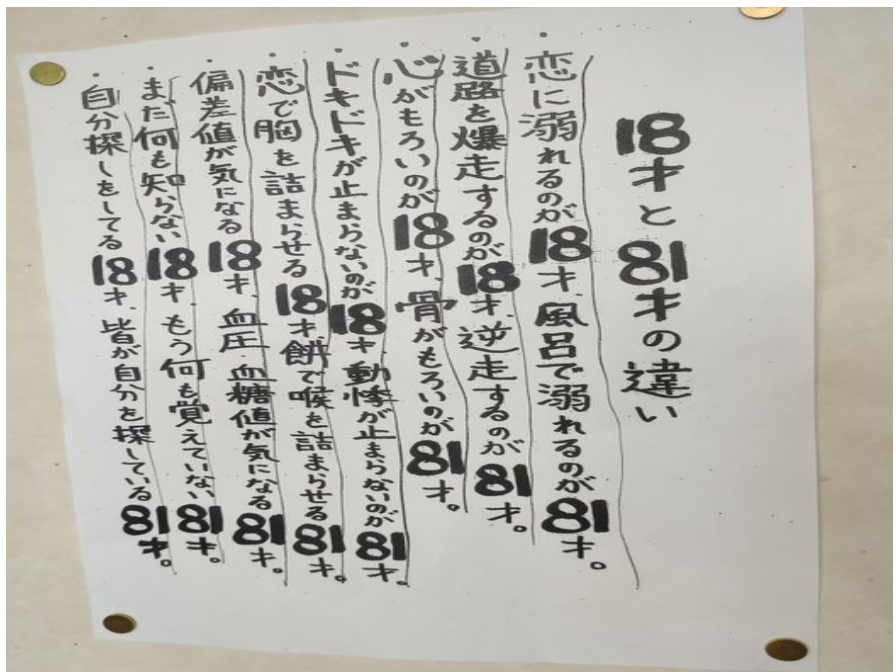 18才と81才の違い
・恋に溺れるのが18才、風呂で溺れるのが81才。
・道路を爆走するのが18才、逆走するのが81才。
・心がもろいのが18才、骨がもろいのが81才。
・ドキドキが止まらないのが18才動悸が止まらないのが81才。
・恋で胸を詰まらせる18才餅で喉を詰まらせる81才。
・偏差値が気になる18才、血圧・血糖値が気になる81才。
・まだ何も知らない18才、もう何も覚えていない81才。
・自分探しをしてる18才、皆が自分を探している81才。